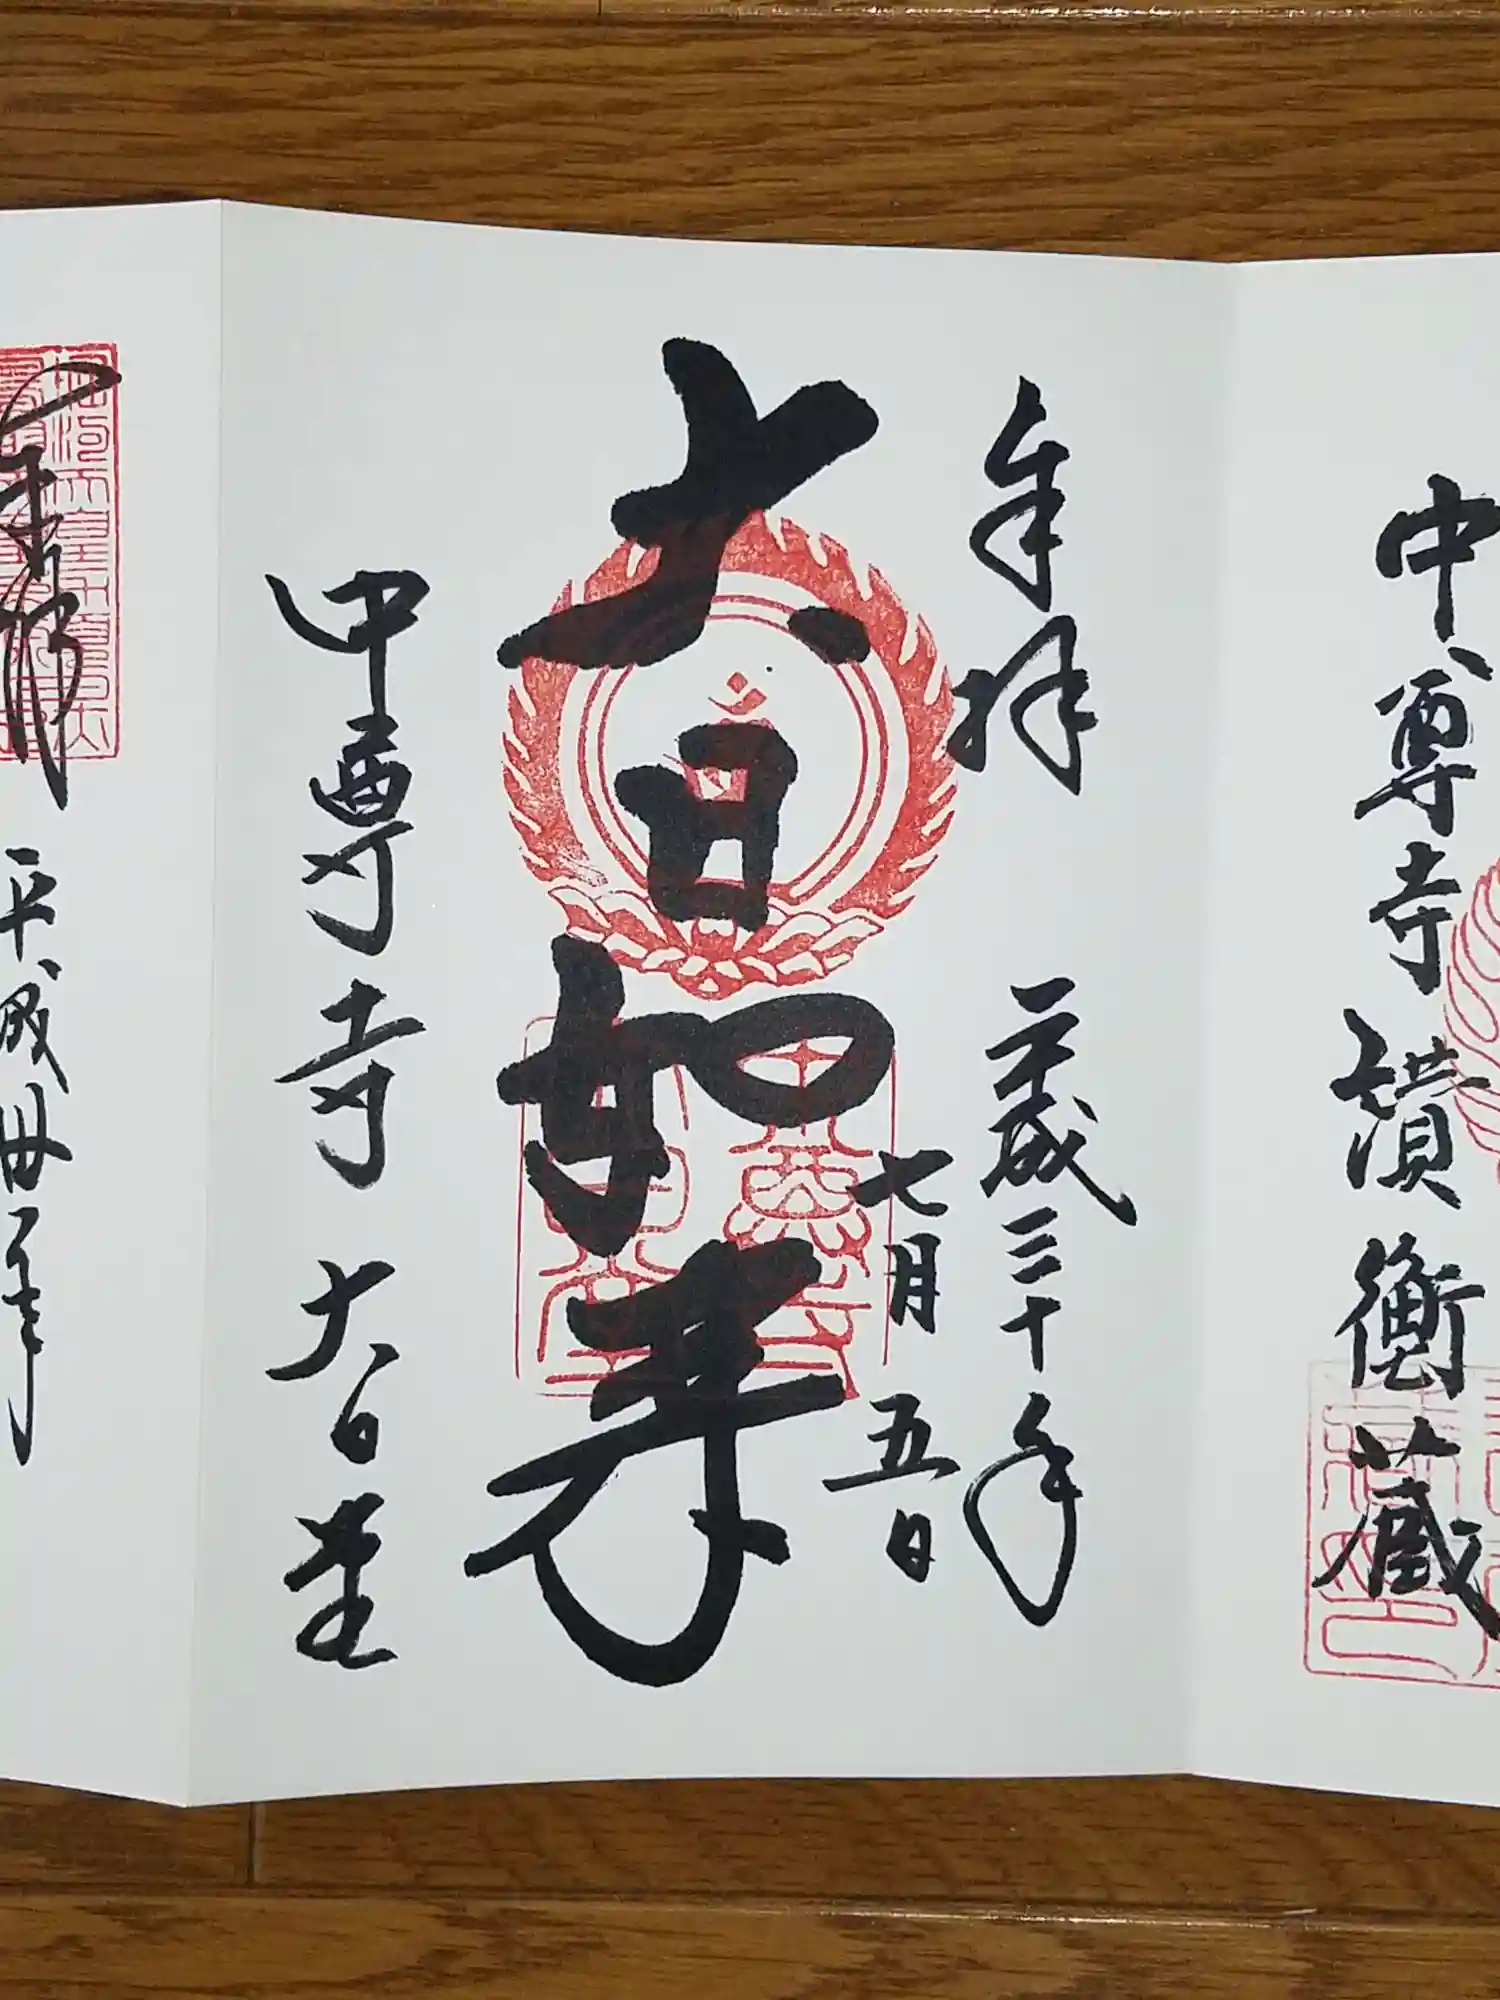 中尊寺 讃衡蔵
奉拝
平成三十年
七月五日
大日如来
中尊寺 大日堂
平成卅年